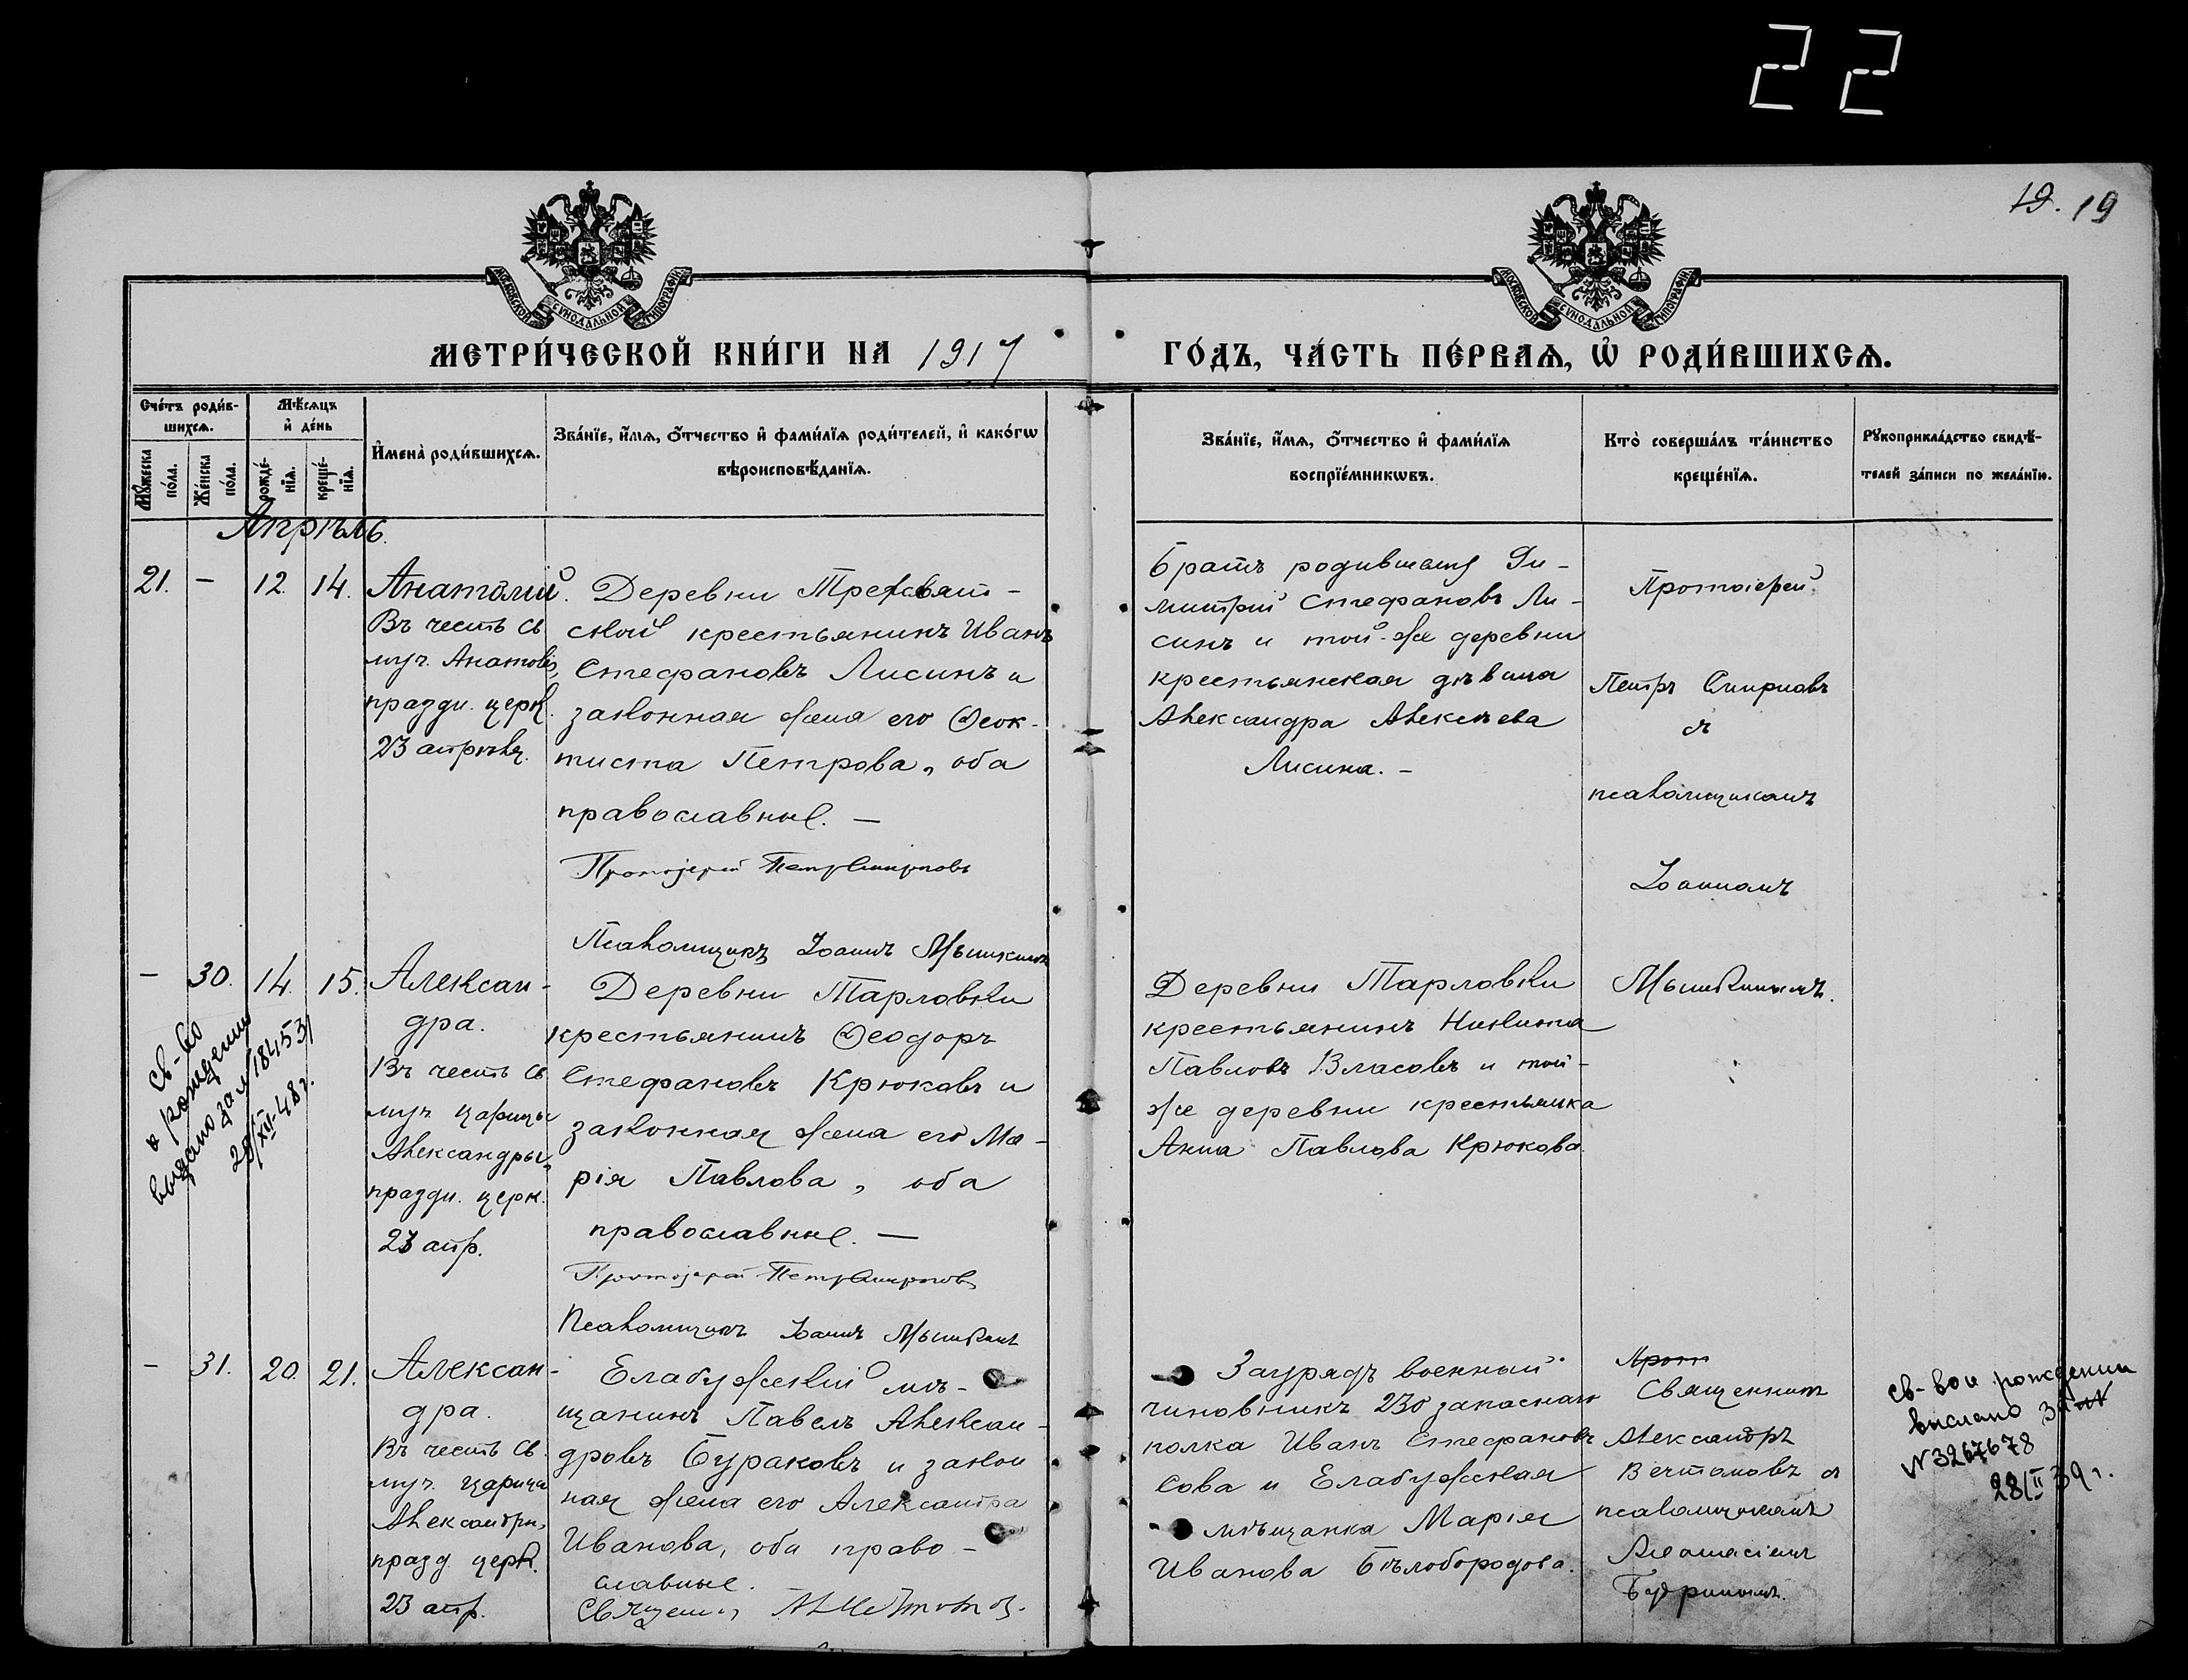 22
19. 19
МОСКОВСКОЙ СУНОДАЛЬНОЙ ТИПОГРАФІИ
МОСКОВСКОЙ СУНОДАЛЬНОЙ ТИПОГРАФІИ
МЕТРИ́ЧЕСКОЙ КНИ́ГИ НА 1917
ГО́ДЪ, ЧА́СТЬ ПЕ́РВАѦ, Ѡ҆ РОДИ́ВШИХСѦ.
Счетъ роди́в-
шихсѧ.
Мѣ́сѧцъ
и҆ де́нь
Мꙋ́жеска
по́ла.
Же́нска
по́ла.
рожде́-
нїѧ.
креще́-
нїѧ.
И҆мена̀ роди́вшихсѧ.
Зва́нїе, и҆́мѧ, ѻ҆́тчество и҆ фами́лїѧ роди́телей, и҆ како́гѡ
вѣроисповѣ́данїѧ.
Зва́нїе, и҆́мѧ, ѻ҆́тчество и҆ фами́лїѧ
воспрїе́мникѡвъ.
Кто̀ соверша́лъ та́инство
креще́нїѧ.
Рꙋкоприкла́дство свидѣ́-
телей за́писи по жела́нїю.
Апрѣль.
21. – 12. 14. Анатолій.
Въ честь св.
муч. Анатолія,
праздн. церк.
23 апрѣля.
Деревни Трехсвят-
ской крестьянинъ Иванъ
Стефановъ Лисинъ и
законная жена его Ѳеок-
тиста Петрова, оба
православные. –
Протоіерей Петръ Смирновъ
Псаломщикъ Іоаннъ Мышкинъ
Братъ родившаго Ди-
митрій Стефановъ Ли-
синъ и той-же деревни
крестьянская дѣвица
Александра Алексѣева
Лисина. –
Протоіерей
Петръ Смирновъ
съ
псаломщикомъ
Іоанномъ
Мышкинымъ.
– 30. 14. 15. Алексан-
дра.
Въ честь св.
муч. царицы
Александры,
праздн. церк.
23 апр.
св-во
о рождении
выдано за № 184531
29/XII-48 г.
Деревни Тарловки
крестьянинъ Ѳеодоръ
Стефановъ Крюковъ и
законная жена его Ма-
рія Павлова, оба
православные. –
Протоіерей Петръ Смирновъ
Псаломщикъ Іоаннъ Мышкинъ
Деревни Тарловки
крестьянинъ Никита
Павловъ Власовъ и той-
же деревни крестьянка
Анна Павлова Крюкова.
– 31. 20. 21. Алексан-
дра.
Въ честь св.
муч. царицы
Александры,
празд. церк.
23 апр.
Елабужскій мѣ-
щанинъ Павелъ Алексан-
дровъ Бураковъ и закон
ная жена его Александра
Иванова, оба право-
славные.
Священн.
Заурядъ военный
чиновникъ 230 запаснаго
полка Иванъ Стефановъ
Сова и Елабужская
мѣщанка Марія
Иванова Бѣлобородова.
Прот
Священникъ
Александръ
съ
псаломщикомъ
Аѳанасіемъ
св-во о рождении
выслано за №
№ 3267678
28/II 39 г.